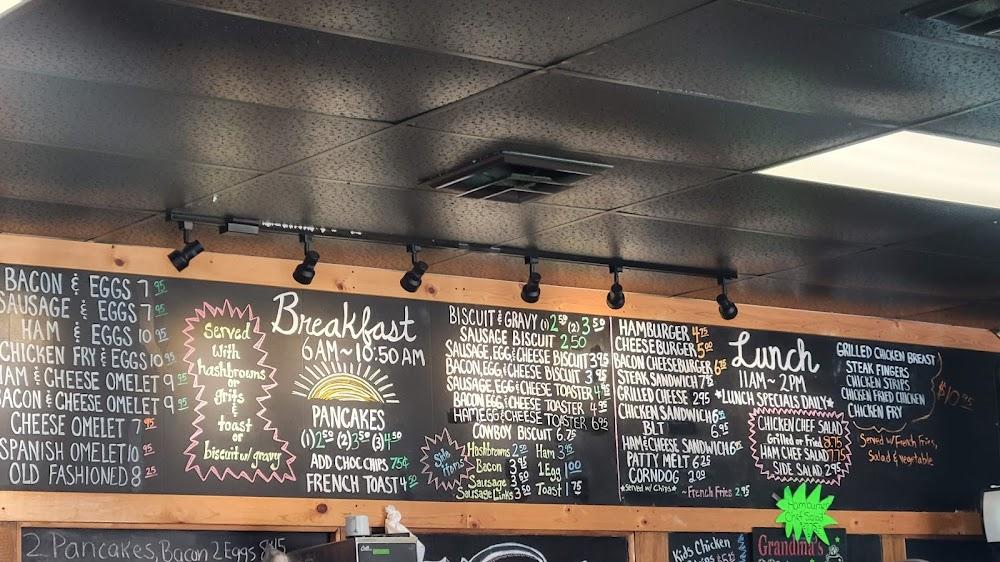 BACON & EGGS 7.95
SAUSAGE & EGGS 7.95
HAM & EGGS 10.95
CHICKEN FRY & EGGS 10.95
HAM & CHEESE OMELET 9.95
BACON & CHEESE OMELET 9.95
CHEESE OMELET 7.95
SPANISH OMELET 10.95
OLD FASHIONED 8.25
Served
with
hashbrowns
or
grits
&
toast
or
biscuit w/ gravy
Breakfast
6 AM ~ 10:50 AM
PANCAKES
(1) 2.50 (2) 3.50 (3) 4.50
ADD CHOC CHIPS 75¢
FRENCH TOAST 4.50
BISCUIT & GRAVY (1) 2.50 (2) 3.50
SAUSAGE BISCUIT 2.50
SAUSAGE, EGG & CHEESE BISCUIT 3.95
BACON, EGG, & CHEESE BISCUIT 3.95
SAUSAGE, EGG & CHEESE TOASTER 4.95
BACON EGG & CHEESE TOASTER 4.95
HAM EGG & CHEESE TOASTER 6.95
COWBOY BISCUIT 6.75
Side
Items
Hashbrowns 2.50 Ham 3.95
Bacon 3.95 1 Egg 1.00
Sausage 3.50 Toast 1.75
Sausage Links 3.50
HAMBURGER 4.75
CHEESEBURGER 5.00
BACON CHEESEBURGER 6.25
STEAK SANDWICH 7.95
GRILLED CHEESE 2.95
CHICKEN SANDWICH 6.25
BLT 6.95
HAM & CHEESE SANDWICH 6.25
PATTY MELT 6.25
CORNDOG 2.00
*Served w/ Chips* ~ French Fries 2.95
Lunch
11AM ~ 2PM
*LUNCH SPECIALS DAILY*
CHICKEN CHEF SALAD
Grilled or Fried 8.75
HAM CHEF SALAD 7.75
SIDE SALAD 2.95
GRILLED CHICKEN BREAST
STEAK FINGERS
CHICKEN STRIPS
CHICKEN FRIED CHICKEN
CHICKEN FRY
$10.95
Served w/ French Fries,
Salad & Vegetable
2 Pancakes, Bacon 2 Eggs
Hamburger
Kids Chicken
Grandma's